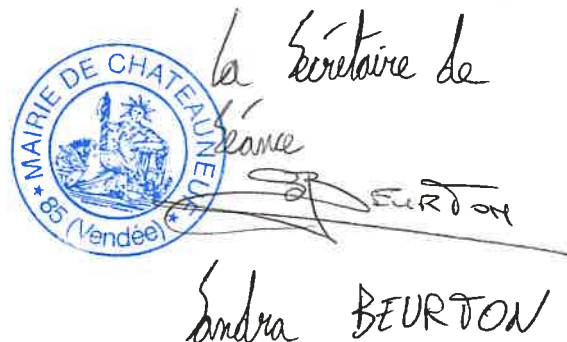 La Secrétaire de
Séance
MAIRIE DE CHATEAUNEUF
★ 85 (Vendée) ★
BEURTON
Sandra BEURTON